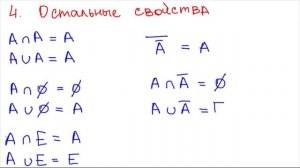 4. Остальные свойства
A∩A = A
A∪A = A
A∩∅ = ∅
A∪∅ = A
A∩E = A
A∪E = E
A̿ = A
A∩A̅ = ∅
A∪A̅ = Γ